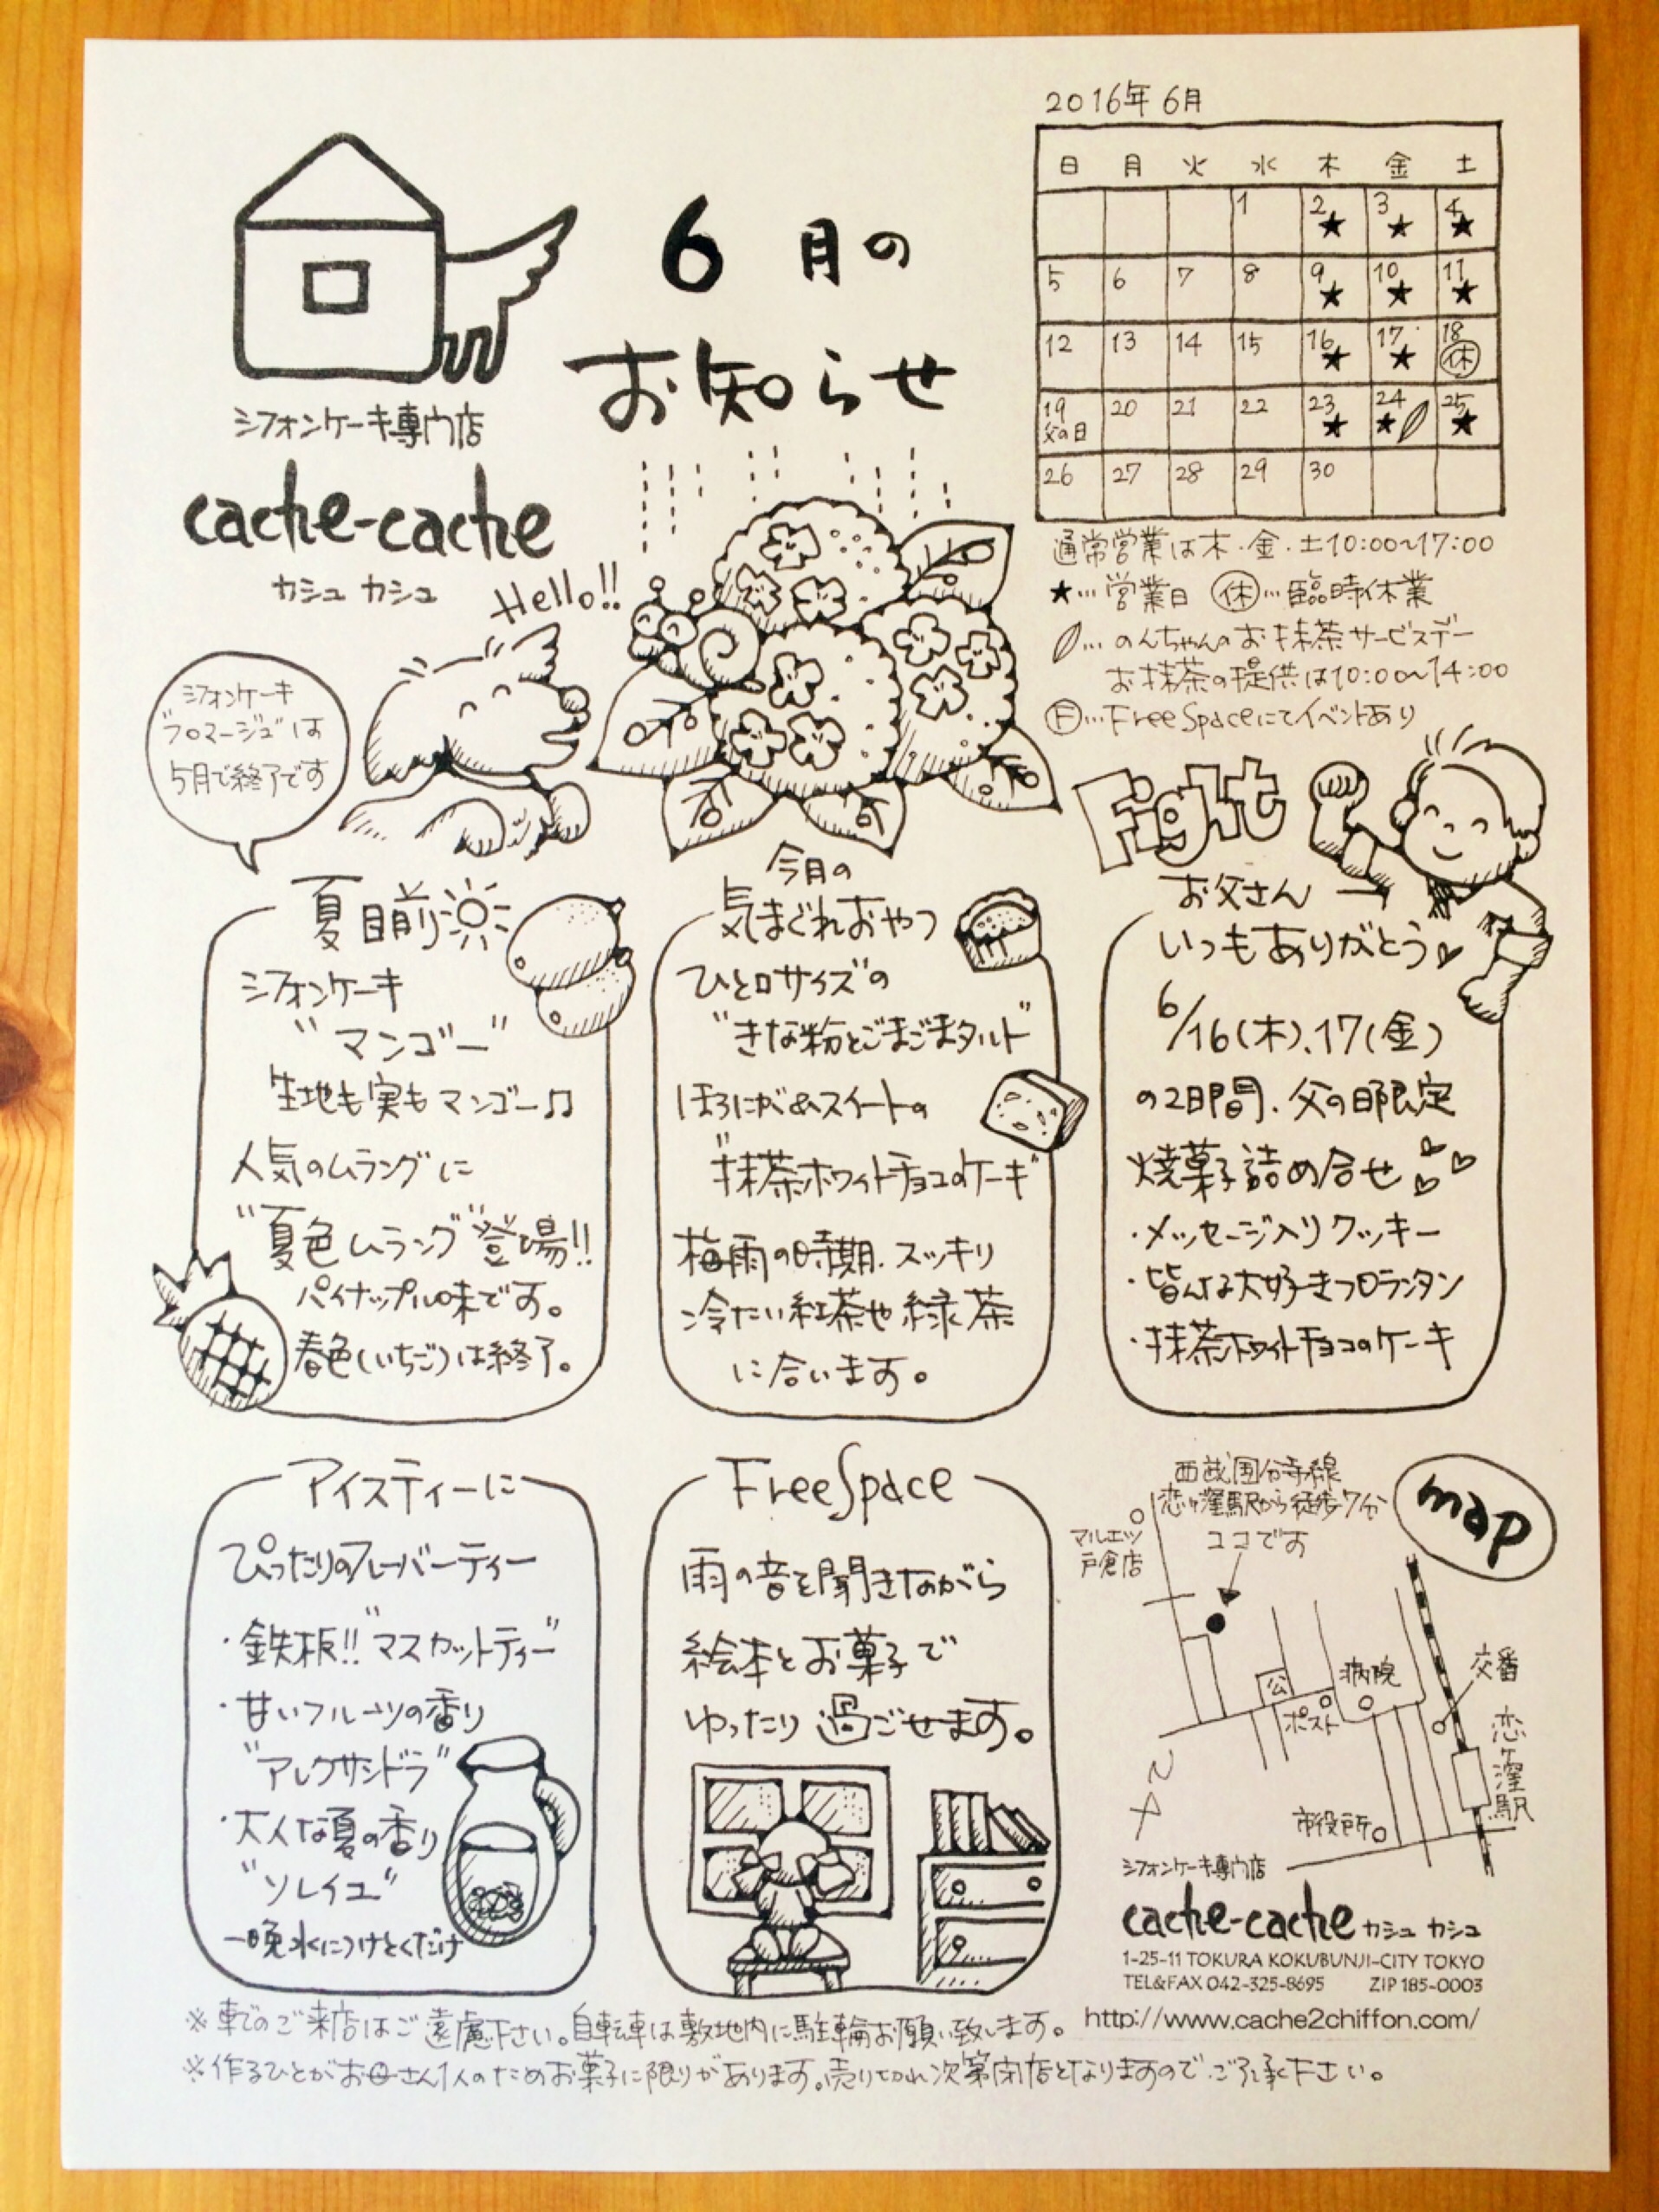 6月の
お知らせ
シフォンケーキ専門店
cache-cache
カシュ カシュ
Hello!!
シフォンケーキ
"フロマージュ"は
5月で終了です
2016年 6月
日 月 火 水 木 金 土
1 2★ 3★ 4★
5 6 7 8 9★ 10★ 11★
12 13 14 15 16★ 17★ 18㊡
19 20 21 22 23★ 24★ 25★
父の日
26 27 28 29 30
通常営業は木・金・土10:00〜17:00
★…営業日 ㊡…臨時休業
…のんちゃんのお抹茶サービスデー
お抹茶の提供は10:00〜14:00
Ⓕ…Free Spaceにてイベントあり
夏目前
シフォンケーキ
"マンゴー"
生地も実もマンゴー♫
人気のムラングに
"夏色ムラング"登場!!
パイナップル味です。
春色(いちご)は終了。
今月の
気まぐれおやつ
ひと口サイズの
"きな粉とごまごまタルト"
ほろにが&スイートの
"抹茶ホワイトチョコのケーキ"
梅雨の時期、スッキリ
冷たい紅茶や緑茶
に合います。
Fight
お父さん
いつもありがとう♡
6/16(木)、17(金)
の2日間、父の日限定
焼菓子詰め合せ
・メッセージ入りクッキー
・皆んな大好きフロランタン
・抹茶ホワイトチョコのケーキ
アイスティーに
ぴったりのフレーバーティー
・鉄板!!"マスカットティー"
・甘いフルーツの香り
"アレクサンドラ"
・大人な夏の香り
"ソレイユ"
一晩水につけとくだけ
FreeSpace
雨の音を聞きながら
絵本とお菓子で
ゆったり過ごせます。
map
西武国分寺線
恋ヶ窪駅から徒歩7分
ココです
マルエツ
戸倉店
公
ポスト
病院
交番
恋ヶ窪駅
市役所
N
シフォンケーキ専門店
cache-cache カシュ カシュ
1-25-11 TOKURA KOKUBUNJI-CITY TOKYO
TEL&FAX 042-325-8695 ZIP 185-0003
http://www.cache2chiffon.com/
※車でのご来店はご遠慮下さい。自転車は敷地内に駐輪お願い致します。
※作るひとがお母さん1人のためお菓子に限りがあります。売り切れ次第閉店となりますので、ご了承下さい。